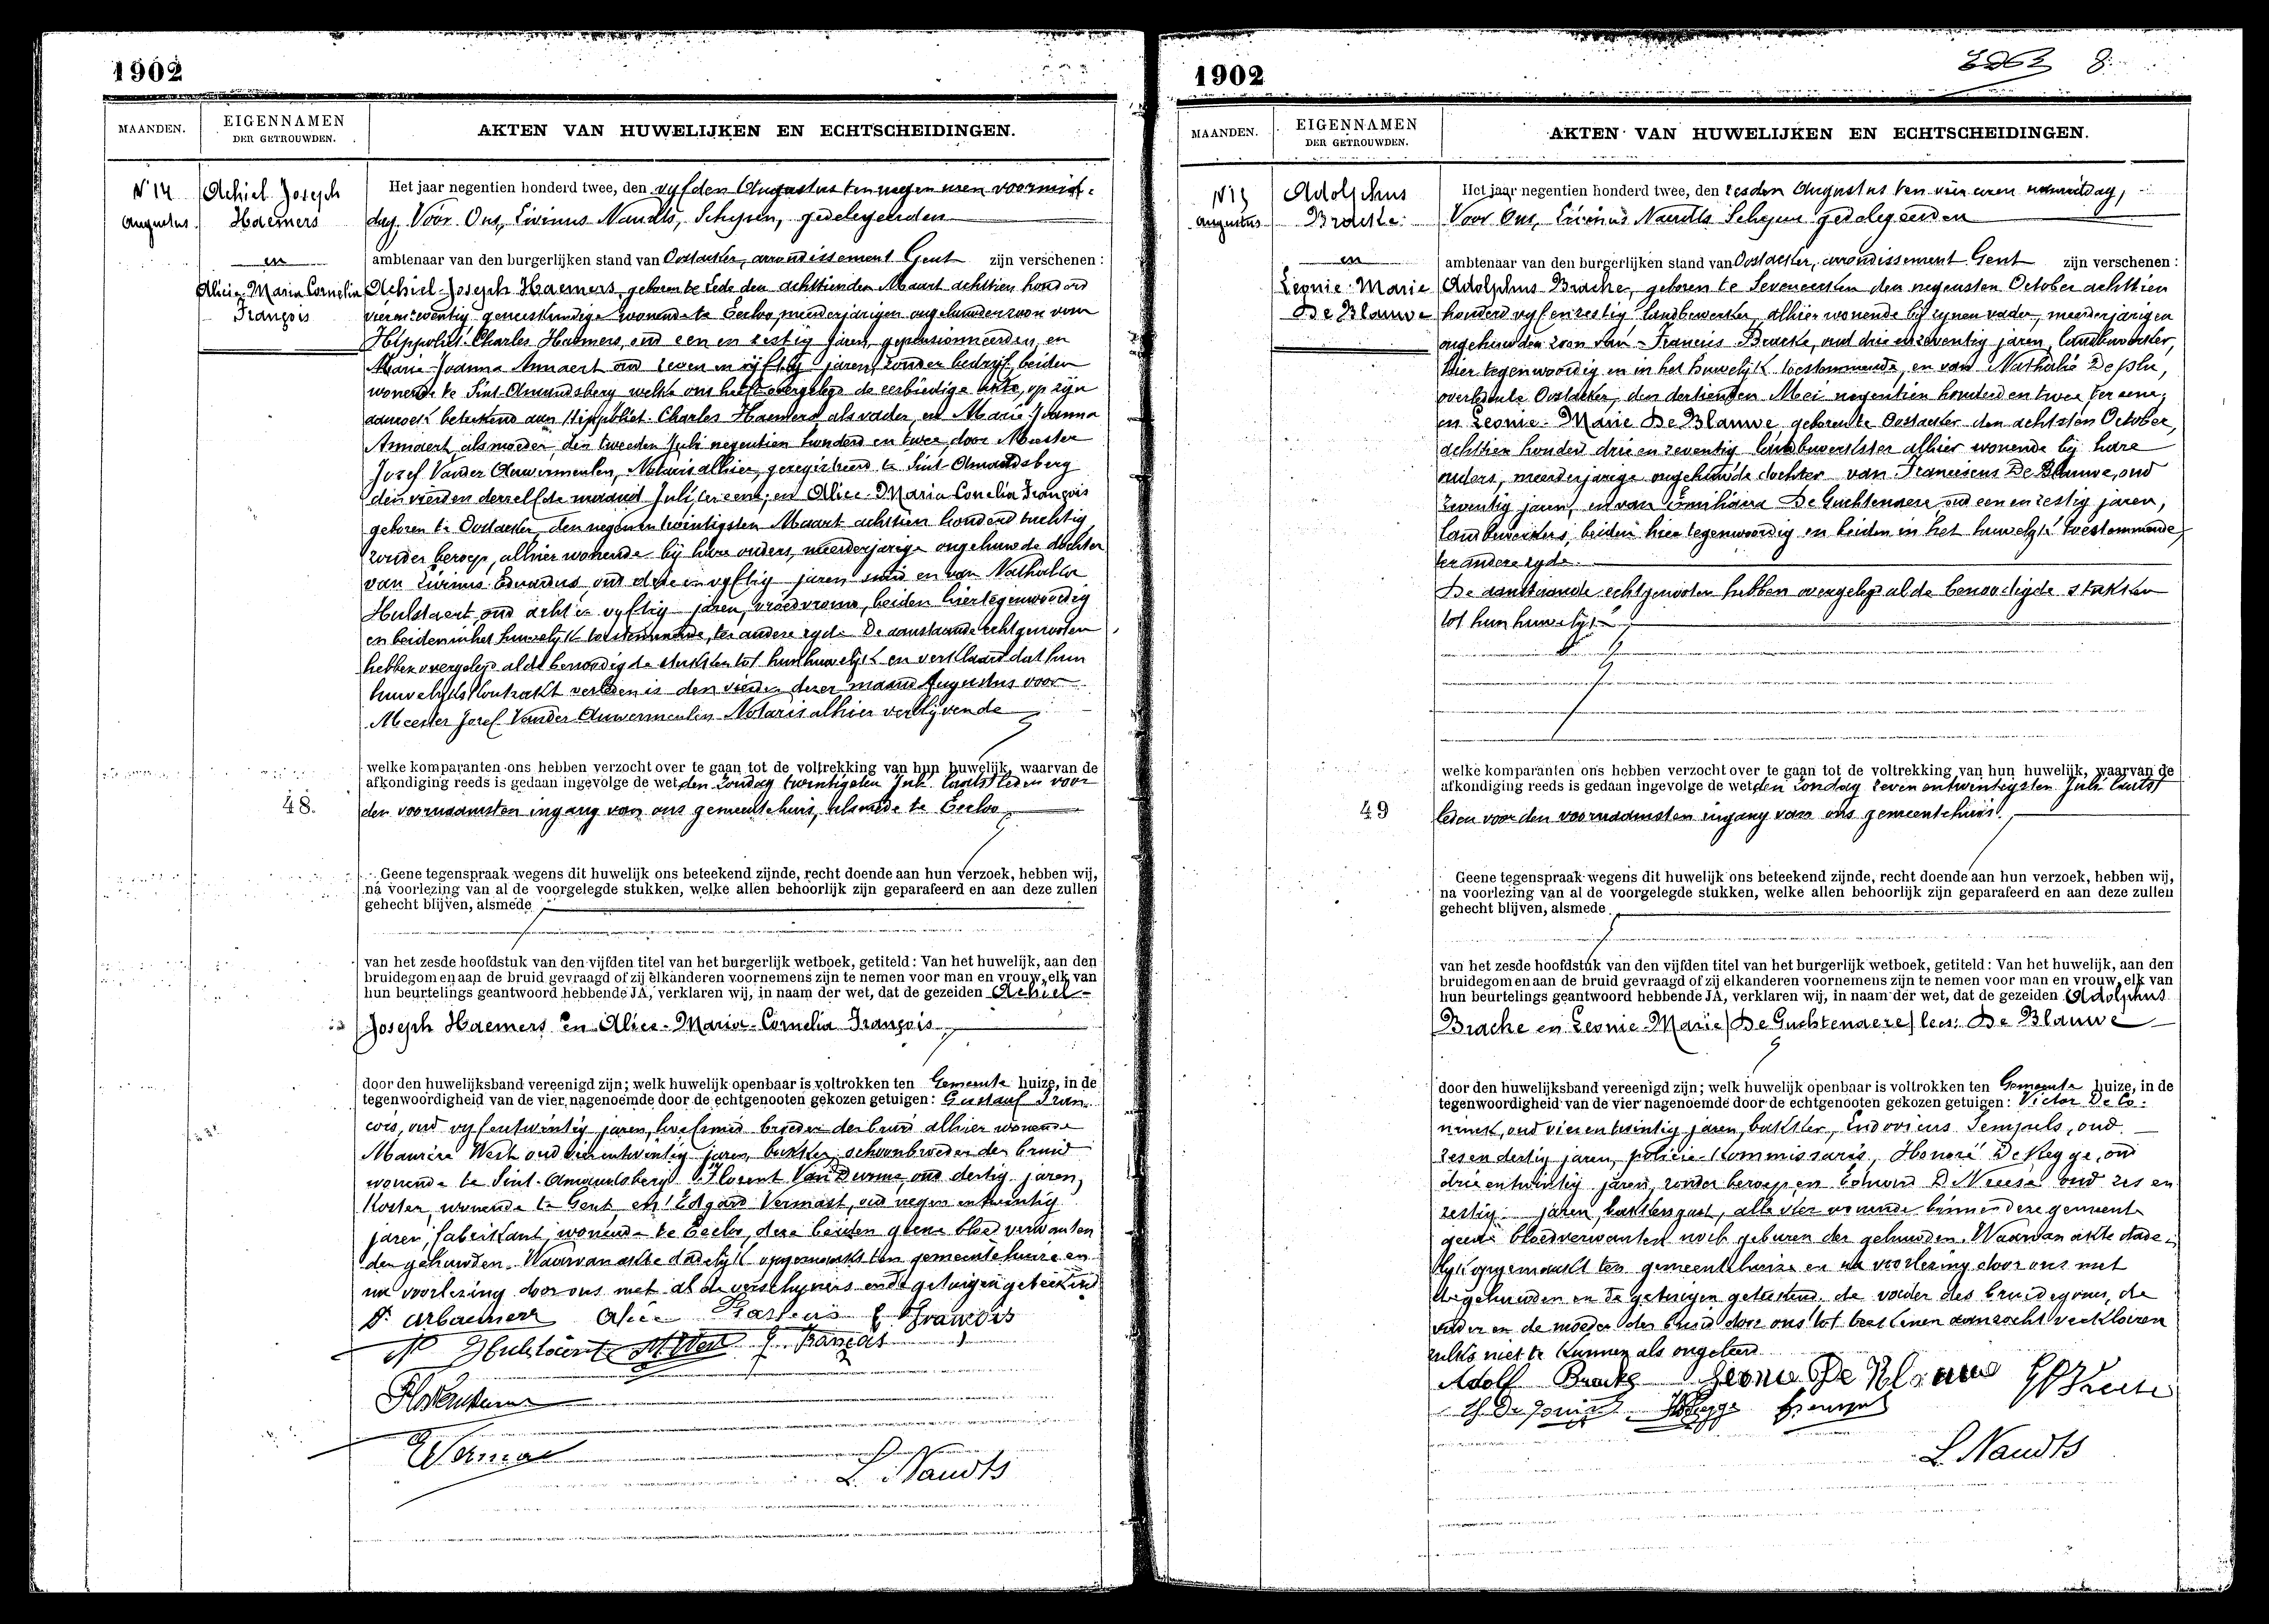 1902
MAANDEN.
EIGENNAMEN
DER GETROUWDEN.
AKTEN VAN HUWELIJKEN EN ECHTSCHEIDINGEN.
N 14
Augustus.
Achiel Joseph
Haemers
en
Alice-Maria Cornelia
François
Het jaar negentien honderd twee, den vyfden Augustus ten negen uren voormid-
dag, Voor Ons, Livinus Naudts, Schepen, gedelegeerden
ambtenaar van den burgerlijken stand van Oostacker, arrondissement Gent zijn verschenen:
Achiel-Joseph Haemers, geboren te Lede den achttienden Maart achttien honderd
vierenzeventig geneeskundige wonende te Eecloo, meerderjarigen ongehuwden zoon van
Hippoliet-Charles Haemers, oud een en zestig jaren, gepensionneerden, en
Marie-Joanna Annaert oud zeven en vyftig jaren, zonder bedryf beiden
wonende te Sint-Amandsberg welke ons heeft overgelegd de eerbiedige akte, op zijn
aanzoek beteekend aan Hippoliet-Charles Haemers, als vader, en Marie-Joanna
Annaert, als moeder, den tweeden Juli negentien honderd en twee, door Meester
Jozef Vander Auwermeulen, Notaris alhier, geregistreerd te Sint-Amandsberg
den vierden derzelfde maand Juli, ter eene; en Alice-Maria Conelia François
geboren te Oostacker, den negenentwintigsten Maart achttien honderd tachtig
zonder beroep, alhier wonende bij hare ouders, meerderjarige ongehuwde dochter
van Livinus Eduardus, oud drie en vyftig jaren smid en van Nathalia
Hulstaert, oud acht en vyftig jaren, vroedvrouw, beiden hier tegenwoordig
en beiden in het huwelyk toestemmende, ter andere zyde. De aanstaande echtgenooten
hebben overgelegd al de benoodigde stukken tot hun huwelijk en verklaard dat hun
huwelyks kontrakt verleden is den vierden dezer maand Augustus voor
Meester Jozef Vander Auwermeulen Notaris alhier verblijvende
welke komparanten ons hebben verzocht over te gaan tot de voltrekking van hun huwelijk, waarvan de
afkondiging reeds is gedaan ingevolge de wet, den Zondag twintigsten Juli laatstleden voor
48.
den voornaamsten ingang van ons gemeentehuis, alsmede te Eecloo
Geene tegenspraak wegens dit huwelijk ons beteekend zijnde, recht doende aan hun verzoek, hebben wij,
na voorlezing van al de voorgelegde stukken, welke allen behoorlijk zijn geparafeerd en aan deze zullen
gehecht blijven, alsmede
van het zesde hoofdstuk van den vijfden titel van het burgerlijk wetboek, getiteld: Van het huwelijk, aan den
bruidegom en aan de bruid gevraagd of zij elkanderen voornemens zijn te nemen voor man en vrouw, elk van
hun beurtelings geantwoord hebbende JA, verklaren wij, in naam der wet, dat de gezeiden Achiel-
Joseph Haemers en Alice-Maria-Cornelia François
door den huwelijksband vereenigd zijn; welk huwelijk openbaar is voltrokken ten Gemeente huize, in de
tegenwoordigheid van de vier nagenoemde door de echtgenooten gekozen getuigen: Gustaaf Fran-
çois, oud vyfentwintig jaren, hoefsmid broeder der bruid alhier wonende
Maurice West oud vierentwintig jaren, bakker, schoonbroeder der bruid
wonende te Sint-Amandsberg Florent Van Durme, oud dertig jaren,
Koster, wonende te Gent en Edgard Vermast, oud negen en twintig
jaren, fabrikant, wonende te Eecloo, deze beiden geene bloedverwanten
den gehuwden. Waarvan akte dadelyk opgemaakt ten gemeentehuize en
na voorlezing door ons met al de verschyners en de getuigen geteekend
N Hulstaert M West G. François
L. Naudts
1902
8.
MAANDEN.
EIGENNAMEN
DER GETROUWDEN.
AKTEN VAN HUWELIJKEN EN ECHTSCHEIDINGEN.
N 15
Augustus
Adolphus
Bracke
en
Leonie-Marie
De Blauwe
Het jaar negentien honderd twee, den zesden Augustus ten vier uren namiddag,
Voor Ons, Livinus Naudts Schepen gedelegeerden
ambtenaar van den burgerlijken stand van Oostacker, arrondissement Gent zijn verschenen:
Adolphus Bracke, geboren te Seveneecken den negensten October achttien
honderd vyfenzestig landbewerker, alhier wonende bij zynen vader, meerderjarigen
ongehuwden zoon van Francies Bracke, oud drie en zeventig jaren, landbewerker,
hier tegenwoordig en in het huwelyk toestemmende, en van Nathalie
overleden te Oostacker, den dertienden Mei negentien honderd en twee ter eene,
en Leonie-Marie De Blauwe, geboren te Oostacker den achtsten October,
achttien honderd drie en zeventig landbewerkster alhier wonende bij hare
ouders, meerderjarige ongehuwde dochter van Franciscus De Blauwe, oud
zeventig jaren, en van De Guchtenaere oud een en zestig jaren,
landbewerkers, beiden hier tegenwoordig en beiden in het huwelyk toestemmende,
ter andere zyde.
De aanstaande echtgenooten hebben overgelegd al de benoodigde stukken
tot hun huwelijk
welke komparanten ons hebben verzocht over te gaan tot de voltrekking van hun huwelijk, waarvan de
afkondiging reeds is gedaan ingevolge de wet, den Zondag zeven en twintigsten Juli laatst
49
leden voor den voornaamsten ingang van ons gemeentehuis.
Geene tegenspraak wegens dit huwelijk ons beteekend zijnde, recht doende aan hun verzoek, hebben wij,
na voorlezing van al de voorgelegde stukken, welke allen behoorlijk zijn geparafeerd en aan deze zullen
gehecht blijven, alsmede
van het zesde hoofdstuk van den vijfden titel van het burgerlijk wetboek, getiteld: Van het huwelijk, aan den
bruidegom en aan de bruid gevraagd of zij elkanderen voornemens zijn te nemen voor man en vrouw, elk van
hun beurtelings geantwoord hebbende JA, verklaren wij, in naam der wet, dat de gezeiden Adolphus
Bracke en Leonie-Marie (De Guchtenaere) lees: De Blauwe
door den huwelijksband vereenigd zijn; welk huwelijk openbaar is voltrokken ten Gemeente huize, in de
tegenwoordigheid van de vier nagenoemde door de echtgenooten gekozen getuigen: Victor De Co-
ninck, oud vier en twintig jaren, bakker, Ludovicus Sempels, oud
zes en dertig jaren, policie-Kommissaris, Honoré De Regge, oud
drie en twintig jaren, zonder beroep en Edmond D'Neese oud zes en
zestig jaren, bakkersgast, alle vier wonende binnen deze gemeente
geene bloedverwanten noch geburen der gehuwden. Waarvan akte dade-
lyk opgemaakt ten gemeentehuize en na voorlezing door ons met
de gehuwden en de getuigen geteekend, de vader des bruidegoms, de
vader en de moeder der bruid door ons tot teekenen aanzocht verklaren
zulks niet te kunnen als ongeleerd
Adolf Bracke Leonie De Blauwe
L. Naudts